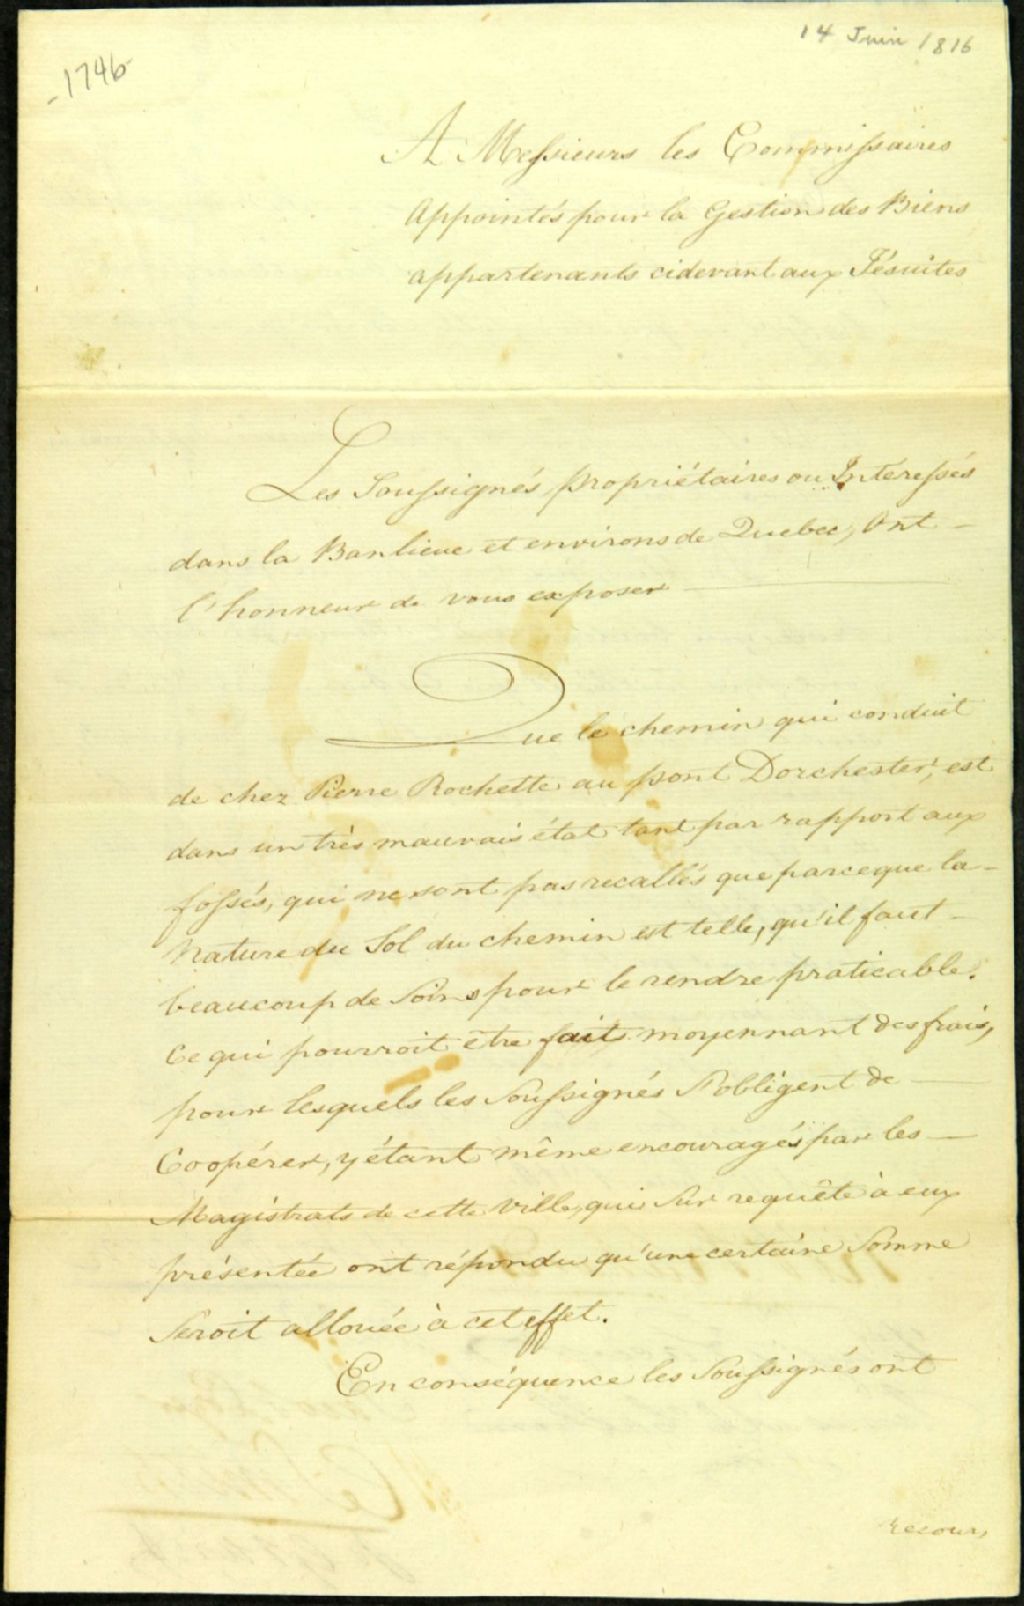 14 Juin 1816
1746
A Messieurs les Commissaires
Appointés pour la Gestion des Biens
appartenants cidevant aux Jésuites
Les Soussignés propriétaires ou Intéressés
dans la Banlieue et environs de Quebec, Ont
l'honneur de vous exposer
Que le chemin qui conduit
de chez Pierre Rochette au pont Dorchester, est
dans un très mauvais état tant par rapport aux
fossés, qui ne sont pas recallés que parceque la
Nature du Sol du chemin est telle, qu'il faut
beaucoup de Soins pour le rendre praticable.
Ce qui pourroit être fait moyennant des frais,
pour lesquels les Soussignés S'obligent de
Coopérer, y étant même encouragés par les
Magistrats de cette Ville, qui Sur requête à eux
présentée ont répondu qu'une certaine Somme
Seroit allouée à cet effet.
En conséquence les Soussignés ont
recours